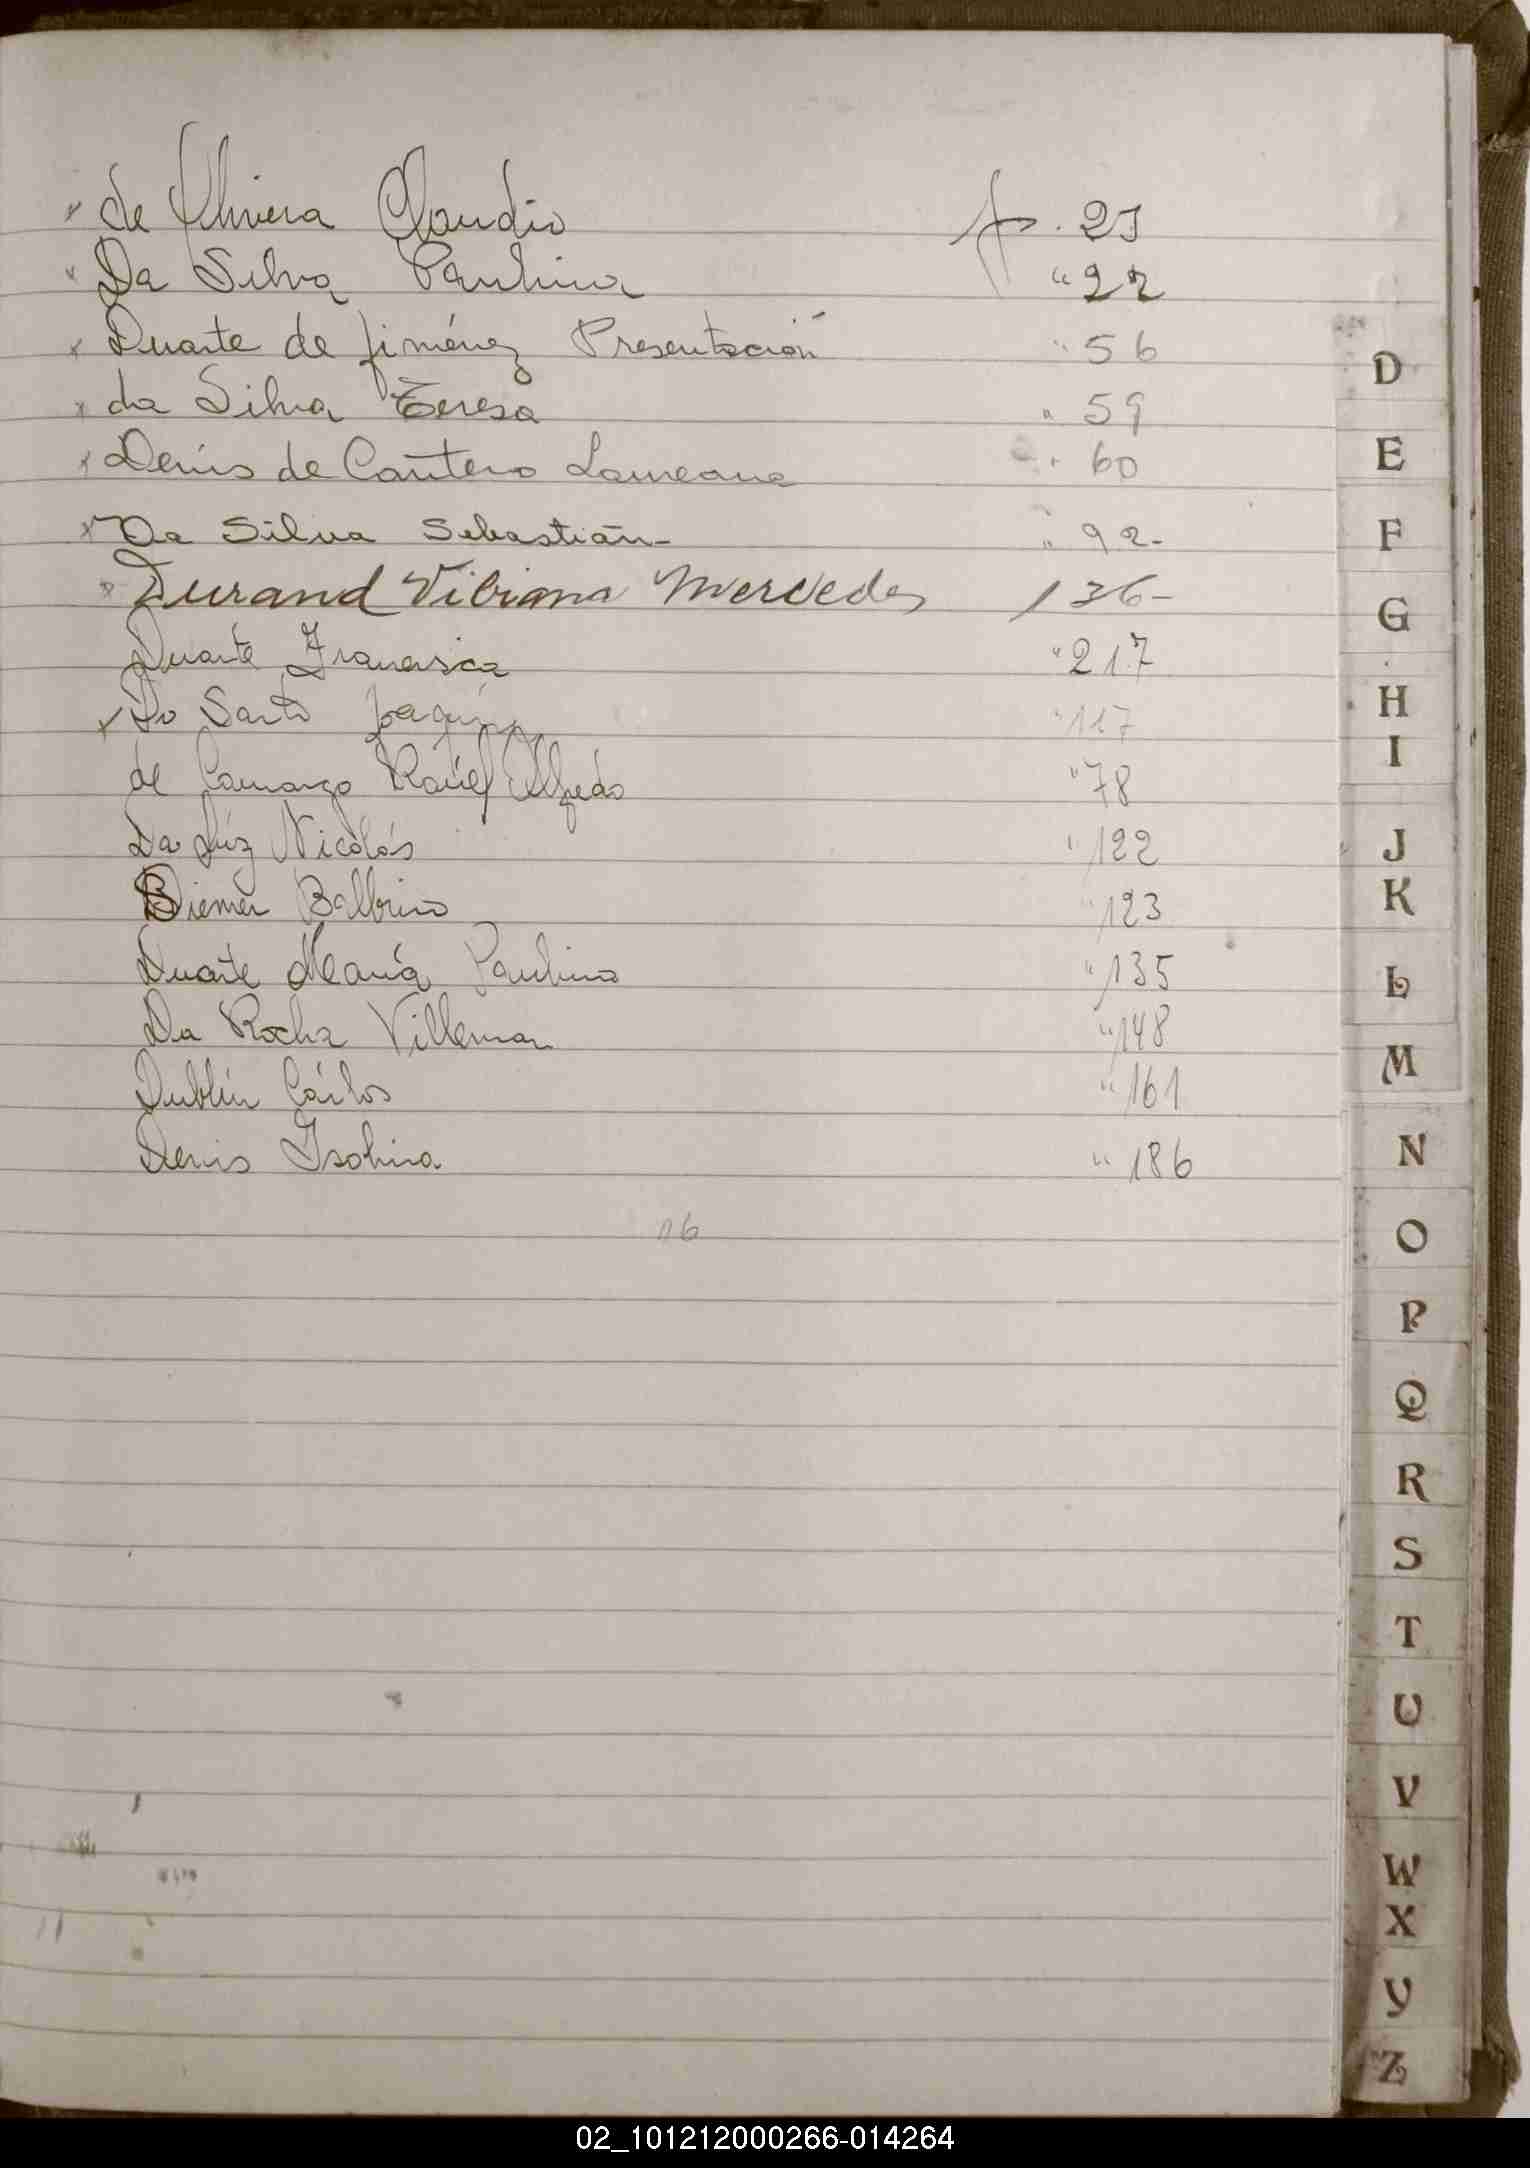 x de Olivera Claudio fo. 21
x Da Silva Paulina " 22
x Duarte de Jiménez Presentación " 56
x da Silva Teresa " 59
x Denis de Cantero Laureana " 60
x Da Silva Sebastián - " 92 -
x Durand Vibiana Mercedes 136 -
Duarte Francisca " 217
x Do Santo Joaquín " 117
de Camargo Raúl Alfredo " 78
Da Luz Nicolás " 122
Diemer Balbino " 123
Duarte María Paulina " 135
Da Rocha Villemar " 148
Dublín Cárlos " 161
Denis Isolina " 186
16
D
E
F
G
H
I
J
K
L
M
N
O
P
Q
R
S
T
U
V
W
X
Y
Z
02_101212000266-014264